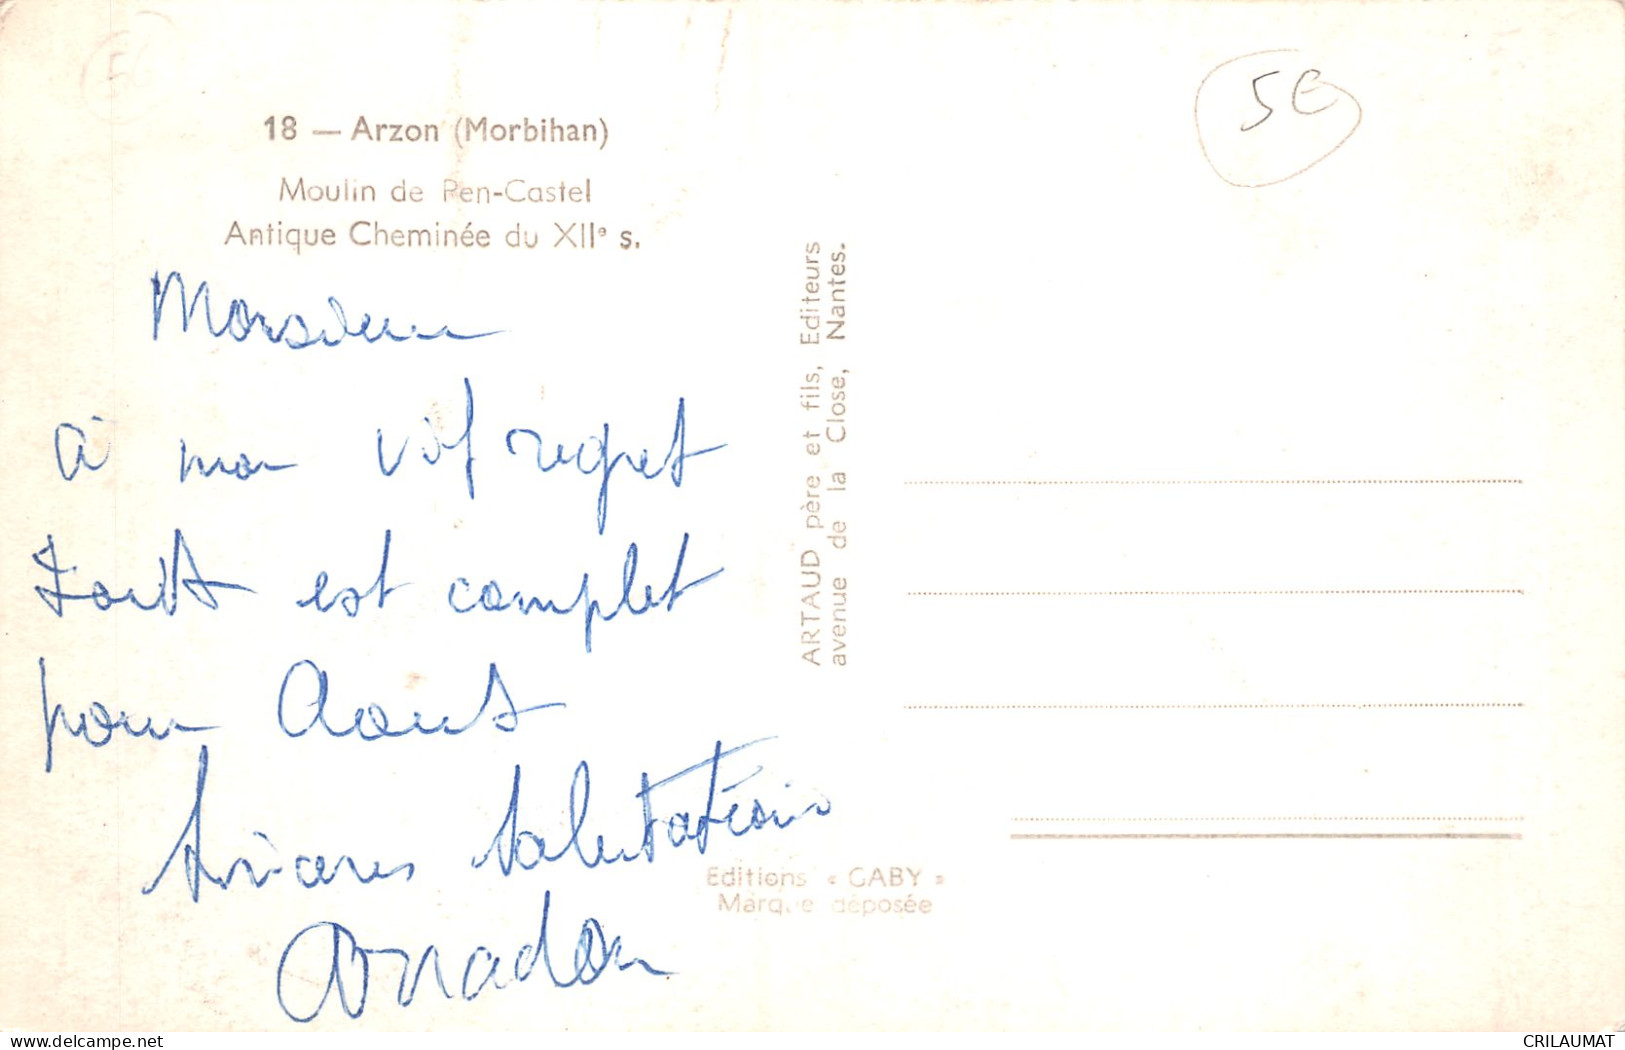 18 — Arzon (Morbihan)
Moulin de Pen-Castel
Antique Cheminée du XIIe s.
Monsieur
à mon vif regret
tout est complet
pour Aout
Sincères Salutations
ARTAUD père et fils, Editeurs
avenue de la Close, Nantes.
Editions « GABY »
Marque déposée
5€
CRILAUMAT